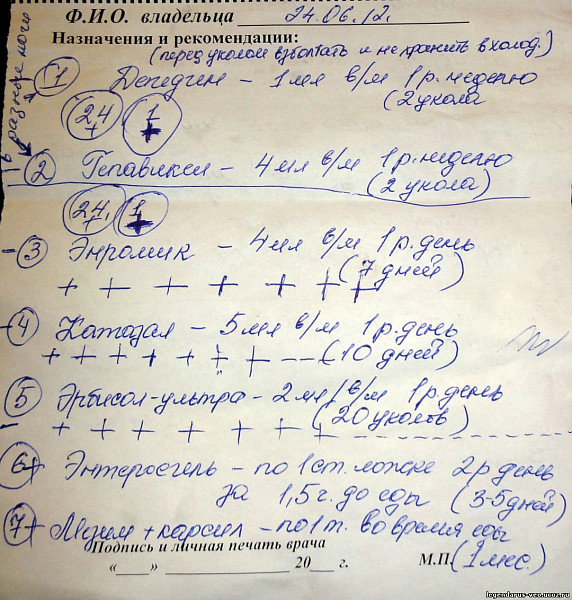 Ф.И.О. владельца 24.06.12.
Назначения и рекомендации:
(перед уколом взболтать и не хранить в холод.)
в разные ноги
1 – 1 мл в/м 1 р. неделю
(2 укола
24 1
2 Гепавикел – 4 мл в/м 1 р. неделю
(2 укола)
24. 1
- 3 Энромик – 4 мл в/м 1 р. день
+ + + + + + + (7 дней)
- 4 Катозал – 5 мл в/м 1 р. день
+ + + + + + + --- (10 дней)
5 Эрбисол-ультра – 2 мл в/м 1 р. день
- + + + + + + + (20 уколов)
6 + Энтеросгель – по 1 ст. ложке 2 р день
за 1,5 г. до еды (3-5 дней)
7 + Мезим + карсил – по 1 т. во время еды
Подпись и личная печать врача
(1 мес.)
«___» ____________ 20__ г. М.П.
legendarus-veo.ucoz.ru